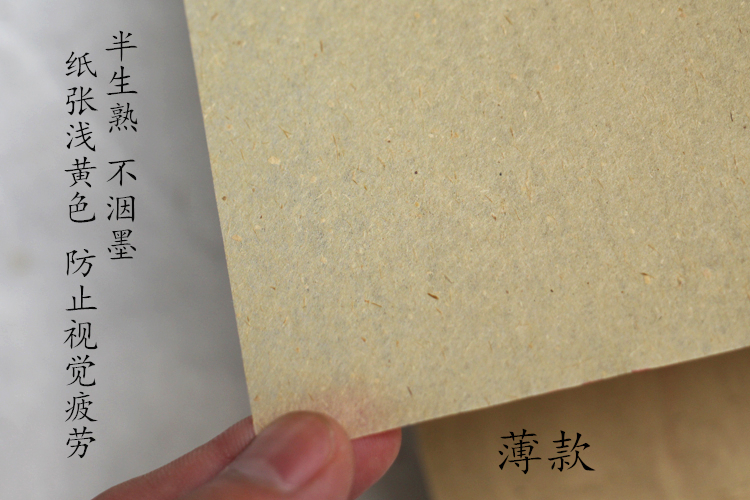 半生熟 不洇墨
纸张浅黄色 防止视觉疲劳
薄款